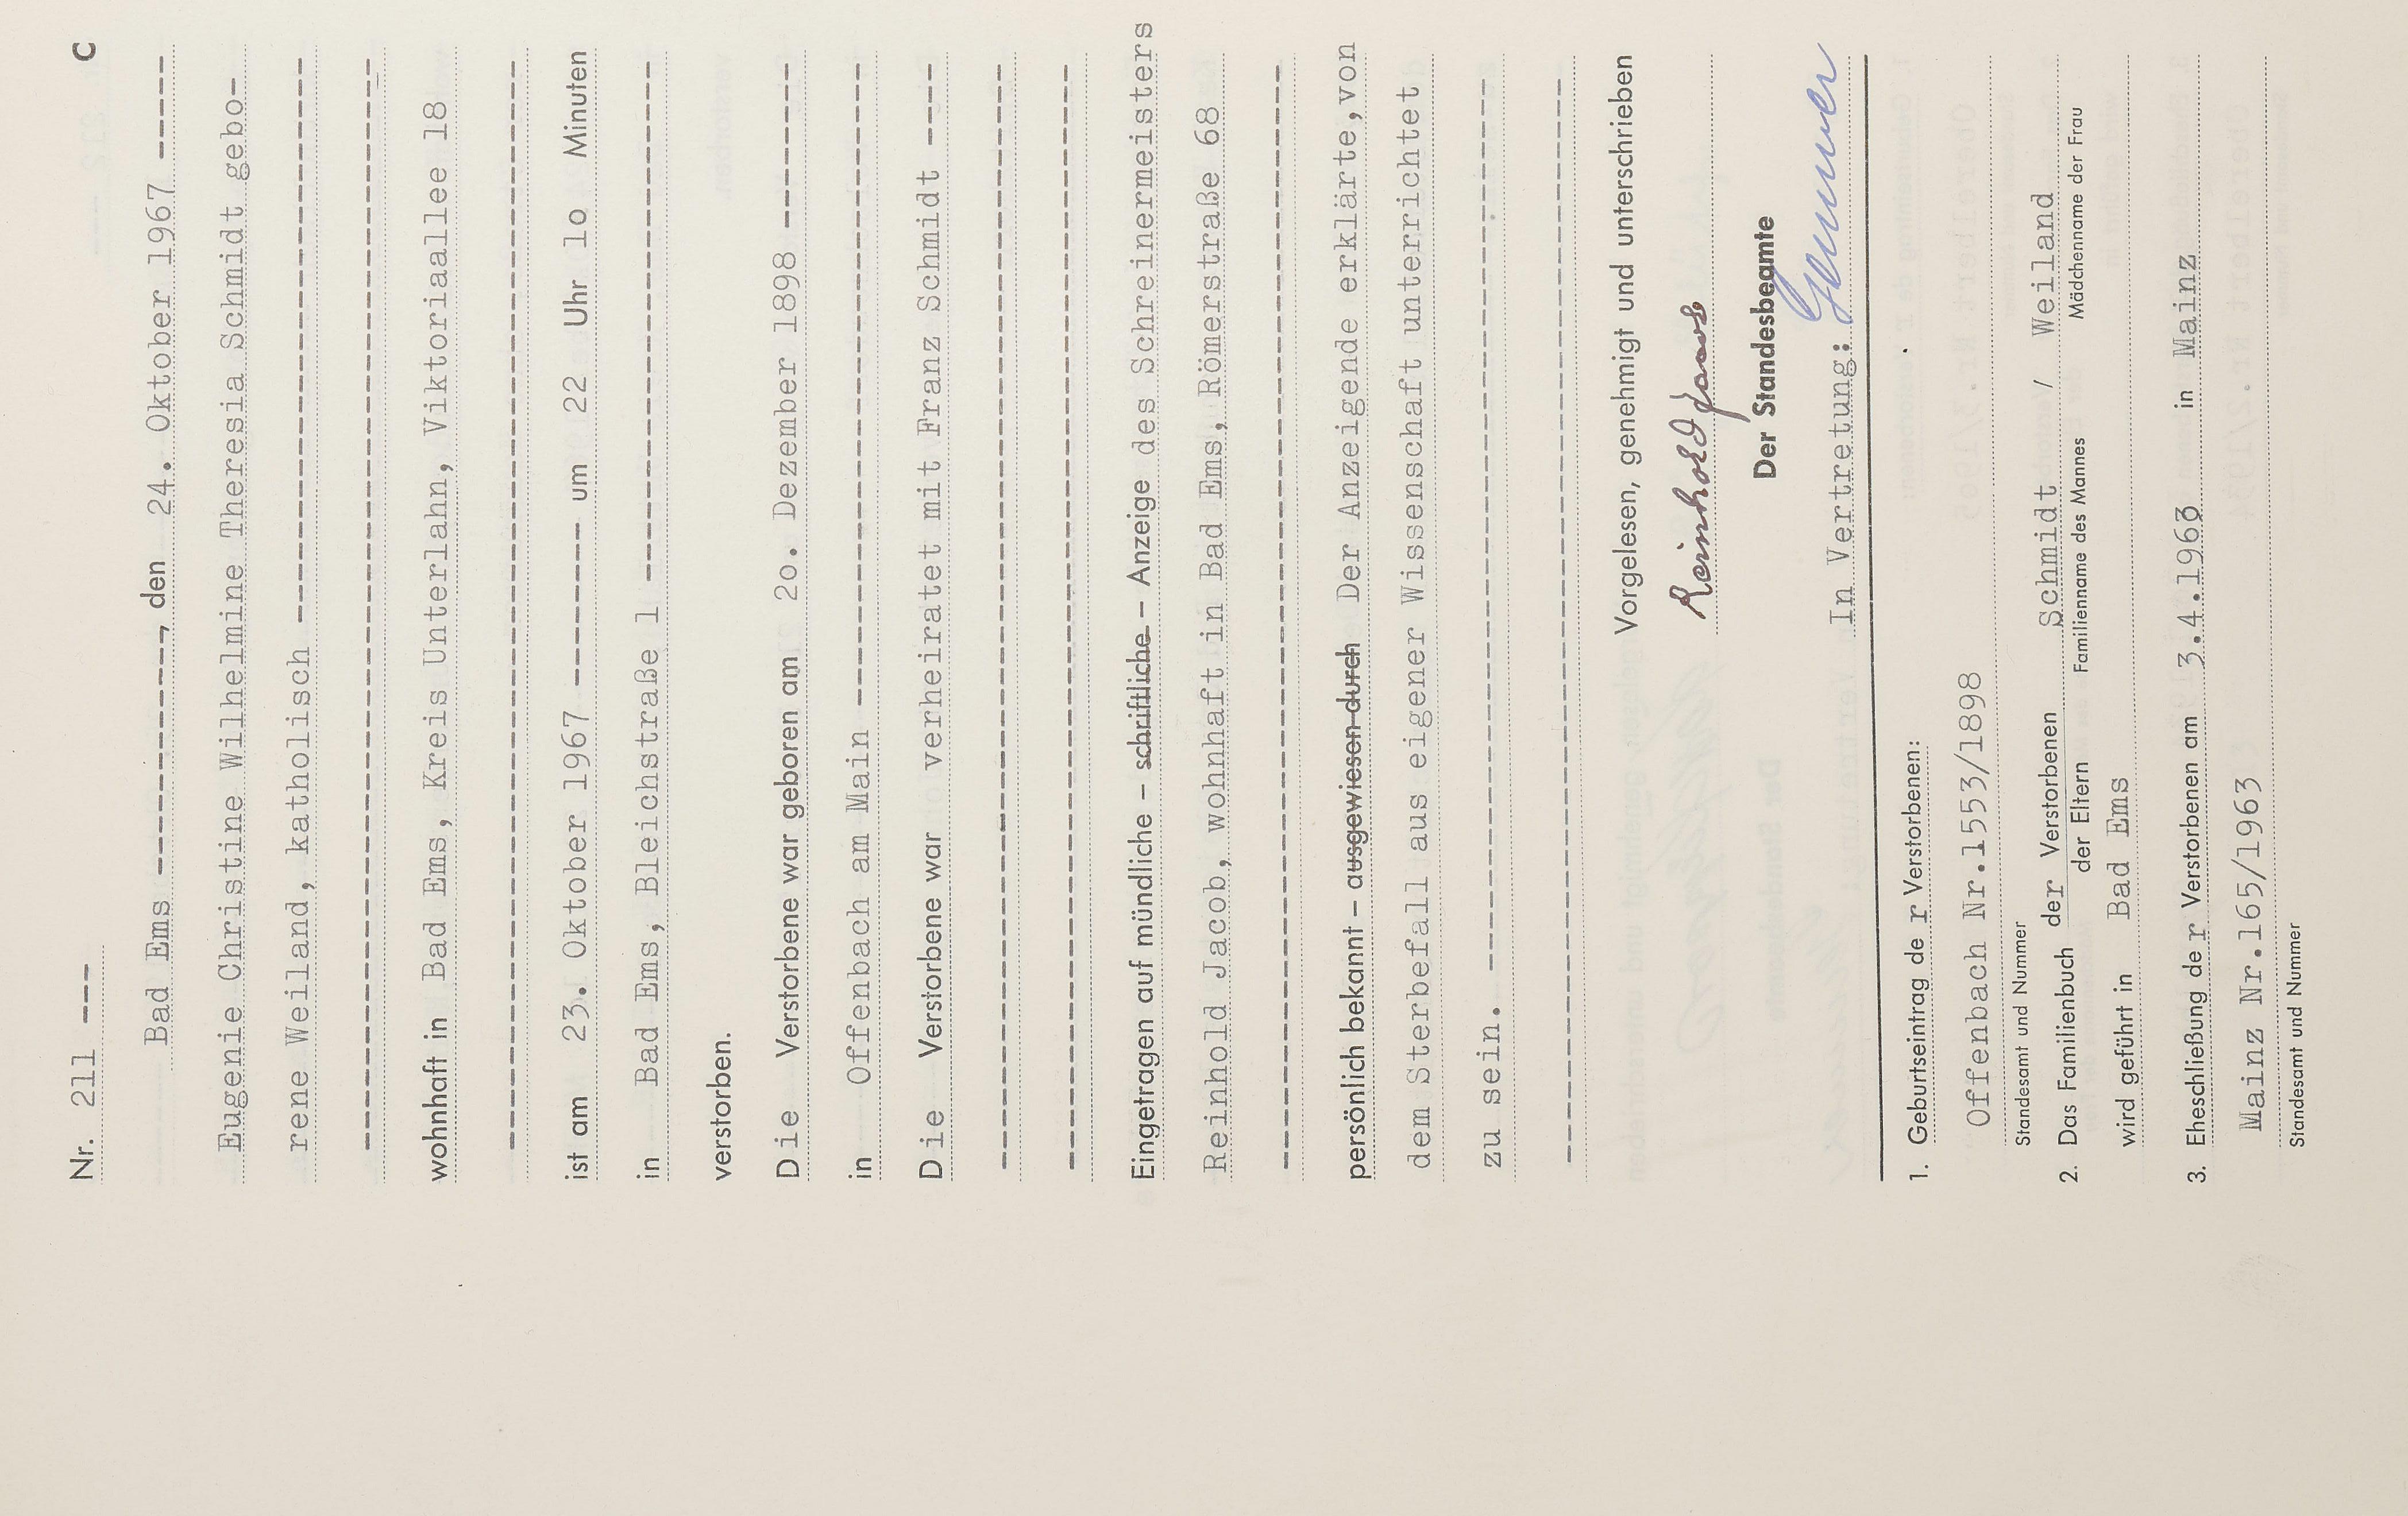 Nr. 211 --- C
Bad Ems ----------, den 24. Oktober 1967 -----
Eugenie Christine Wilhelmine Theresia Schmidt gebo-
rene Weiland, katholisch --------------------------
wohnhaft in Bad Ems, Kreis Unterlahn, Viktoriaallee 18
ist am 23. Oktober 1967 -------- um 22 Uhr 1o Minuten
in Bad Ems, Bleichstraße 1 -------------------------
verstorben.
Die Verstorbene war geboren am 2o. Dezember 1898 --------
in Offenbach am Main -------------------------------
Die Verstorbene war verheiratet mit Franz Schmidt ----
Eingetragen auf mündliche – schriftliche – Anzeige des Schreinermeisters
Reinhold Jacob, wohnhaft in Bad Ems, Römerstraße 68
persönlich bekannt – ausgewiesen durch Der Anzeigende erklärte, von
dem Sterbefall aus eigener Wissenschaft unterrichtet
zu sein. --------------------------------------------
Vorgelesen, genehmigt und unterschrieben
Reinhold Jacob
Der Standesbeamte
In Vertretung:
1. Geburtseintrag der Verstorbenen:
Offenbach Nr.1553/1898
Standesamt und Nummer
2. Das Familienbuch der Verstorbenen Schmidt / Weiland
der Eltern Familienname des Mannes Mädchenname der Frau
wird geführt in Bad Ems
3. Eheschließung der Verstorbenen am 3.4.1963 in Mainz
Mainz Nr.165/1963
Standesamt und Nummer